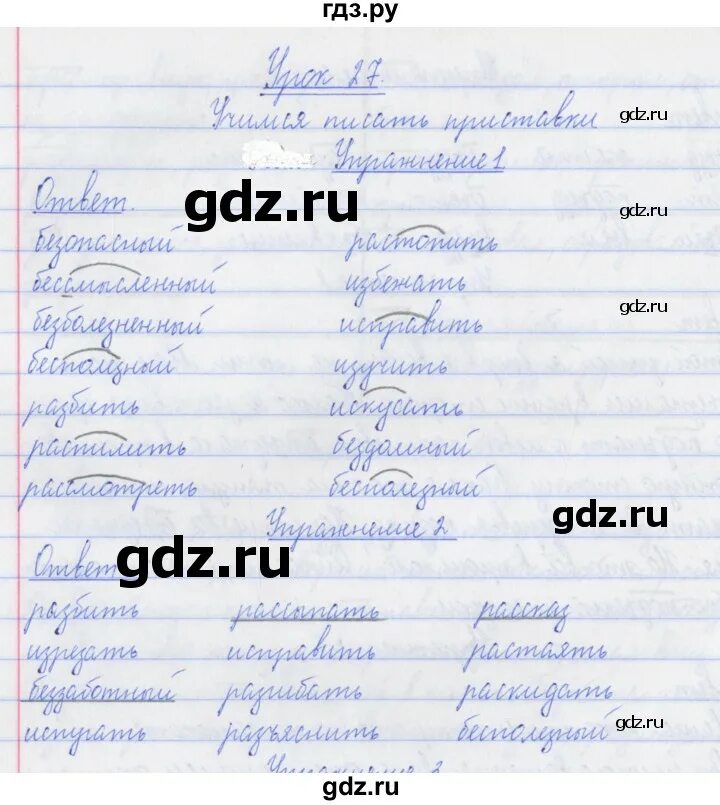 гдз.ру
Урок 27.
Учимся писать приставки
gdz.ru
Упражнение 1
Ответ.
gdz.ru
gdz.ru
безопасный растопить
бессмысленный избежать
gdz.ru
безболезненный исправить
бесполезный изучить
разбить искусать
gdz.ru
распилить бездомный
рассмотреть бесполезный
Упражнение 2
gdz.ru
Ответ
gdz.ru
разбить рассыпать рассказ
gdz.ru
изрезать исправить растаять
беззаботный разгибать раскидать
gdz.ru
испугать разъяснить бесполезный
Упражнение 3
gdz.ru